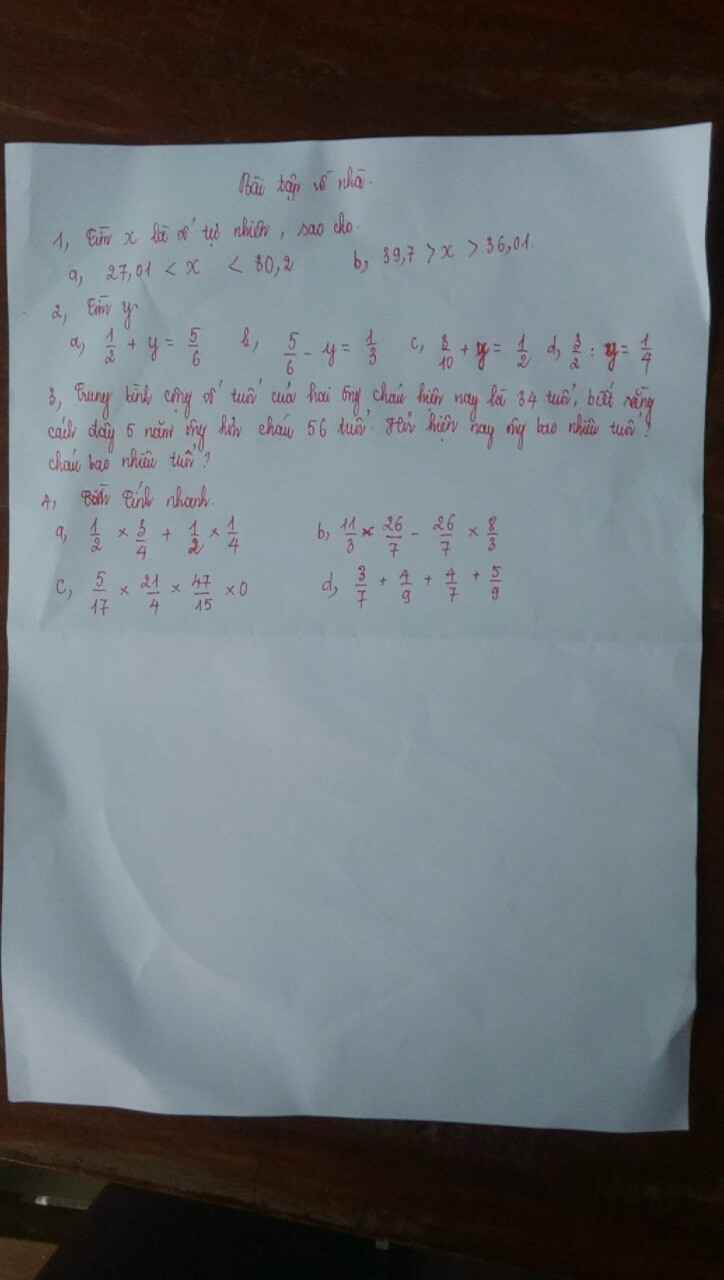 Bài tập về nhà.
1, Tìm x là số tự nhiên, sao cho.
a, 27,01 < x < 30,2 b, 39,7 > x > 36,01.
2, Tìm y.
a, 1/2 + y = 5/6 b, 5/6 - y = 1/3 c, 3/10 + y = 1/2 d, 3/2 : y = 1/4
3, Trung bình cộng số tuổi của hai ông cháu hiện nay là 34 tuổi, biết rằng
cách đây 5 năm ông hơn cháu 56 tuổi. Hỏi hiện nay ông bao nhiêu tuổi?
cháu bao nhiêu tuổi?
4, Tính nhanh.
a, 1/2 × 3/4 + 1/2 × 1/4 b, 11/3 × 26/7 - 26/7 × 8/3
c, 5/17 × 21/4 × 47/15 × 0 d, 3/7 + 4/9 + 4/7 + 5/9